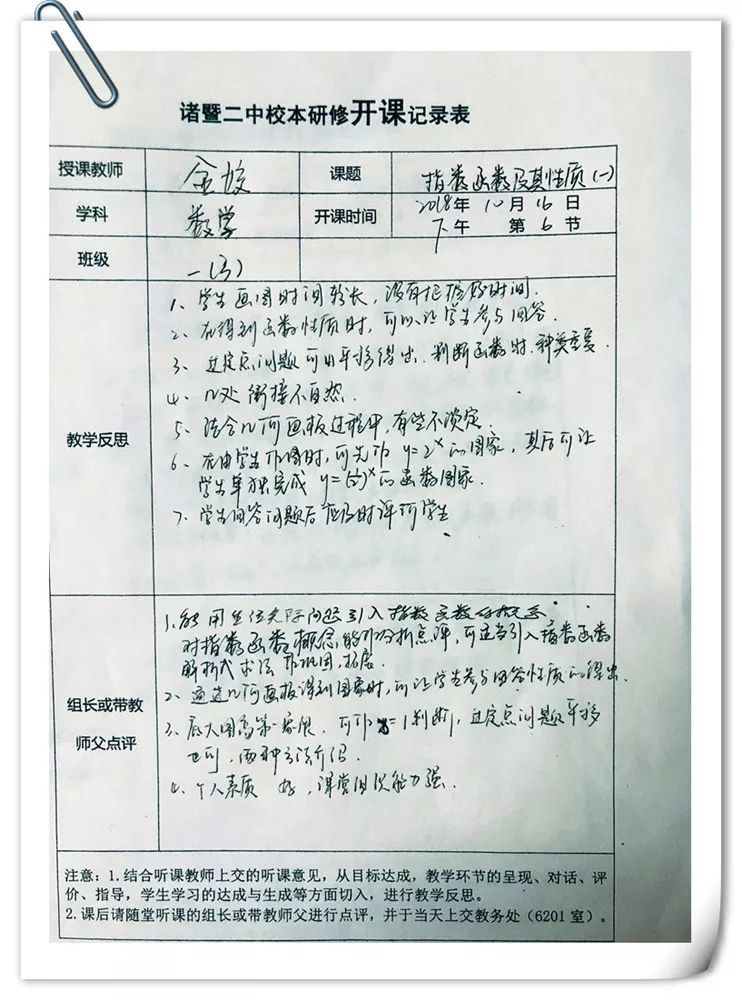 诸暨二中校本研修开课记录表
授课教师 金 课题 指数函数及其性质(一)
学科 数学 开课时间 2018年10月16日
下午 第6节
班级 一(3)
教学反思
1、学生画图时间较长,没有把握好时间.
2、在得到函数性质时,可以让学生参与回答.
3、过定点问题可用平移得出.判断函数时.种类重复.
4、几处衔接不自然.
5、结合几何画板过程中,有些不淡定.
6、在由学生作图时,可先作 y=2^x的图象,其后可让
学生单独完成 y=(½)^x的函数图象.
7、学生回答问题后应及时评价学生
组长或带教
师父点评
1、能用生活实际问题引入指数函数的概念.
对指数函数概念,能作分析点评,可适当引入指数函数
解析式求法作巩固,拓展.
2、通过几何画板得到图象时,可让学生参与回答性质的得出.
3、底大图高第一象限.可作x=1判断,过定点问题平移
也可,两种方法介绍.
4、个人素质 好,课堂组织能力强.
注意:1.结合听课教师上交的听课意见,从目标达成,教学环节的呈现、对话、评
价、指导,学生学习的达成与生成等方面切入,进行教学反思。
2.课后请随堂听课的组长或带教师父进行点评,并于当天上交教务处(6201室)。